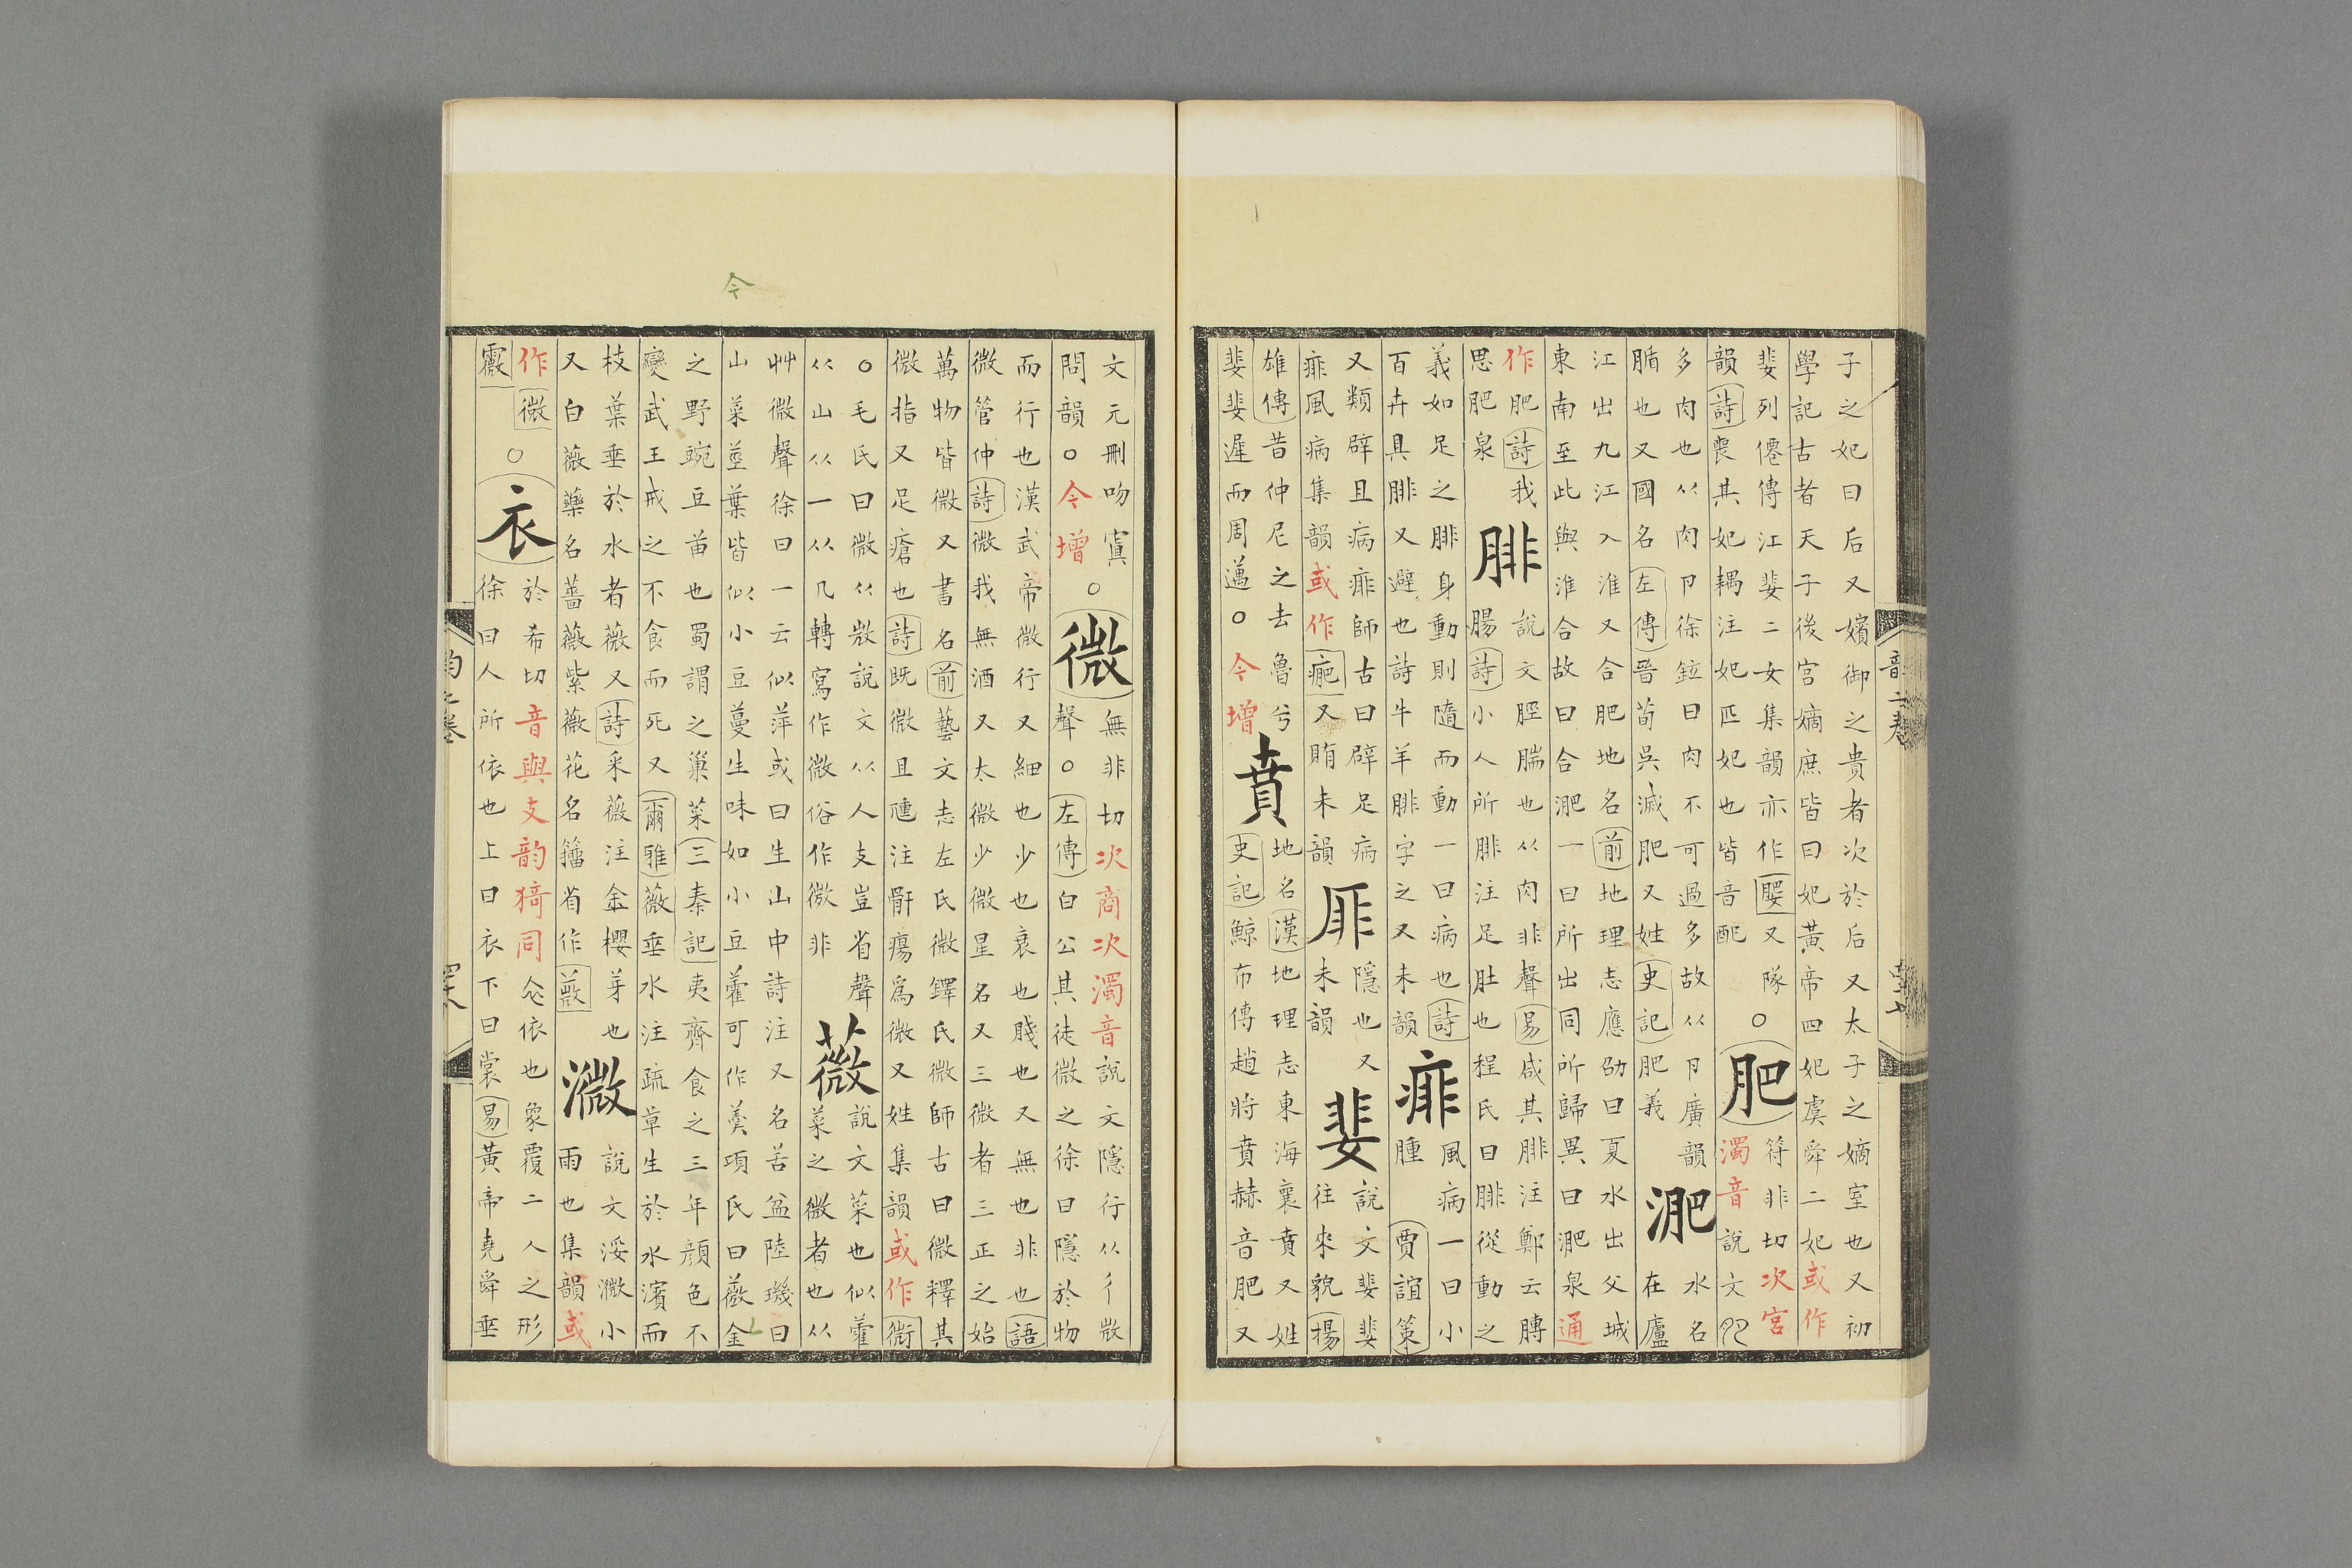 韻上卷
子之妃曰后又嬪御之貴者次於后又太子之嫡室也又初
學記古者天子後宮嫡庶皆曰妃黃帝四妃虞舜二妃或作
婓列僊傳江婓二女集韻亦作又隊
韻詩喪其妃耦注妃匹妃也皆音配
○
肥
符非切次宮
濁音說文
多肉也从肉卪徐鉉曰肉不可過多故从卪廣韻
腯也又國名左傳晉荀吳滅肥又姓史記肥義
淝
水名
在廬
江出九江入淮又合肥地名前地理志應劭曰夏水出父城
東南至此與淮合故曰合淝一曰所出同所歸異曰淝泉通
作肥詩我
思肥泉
腓
說文脛腨也从肉非聲易咸其腓注鄭云膊
腸詩小人所腓注足肚也程氏曰腓從動之
義如足之腓身動則隨而動一曰病也詩
百卉具腓又避也詩牛羊腓字之又未韻
痱
風病一曰小
腫賈誼策
又類辟且病痱師古曰辟足病
痱風病集韻或作又賄未韻
厞
隱也又
未韻
婓
說文婓婓
往來貌揚
雄傳昔仲尼之去魯兮
婓婓遲而周邁○今增
賁
地名漢地理志東海襄賁又姓
史記鯨布傳趙將賁赫音肥又
文元刪吻寘○
問韻○今增
微
無非切次商次濁音說文隱行从彳𢼸
聲○左傳白公其徒微之徐曰隱於物
而行也漢武帝微行又細也少也衰也賤也又無也非也語
微管仲詩微我無酒又太微少微星名又三微者三正之始
萬物皆微又書名前藝文志左氏微鐸氏微師古曰微釋其
微指又足瘡也詩既微且尰注骭瘍爲微又姓集韻或作
○毛氏曰微从𢼸說文从人支豈省聲
从山从一从几轉寫作微俗作微非
薇
說文菜也似藿
菜之微者也从
艸微聲徐曰一云似萍或曰生山中詩注又名苦益陸璣曰
今
山菜莖葉皆似小豆蔓生味如小豆藿可作羹項氏曰薇金
之野豌豆苗也蜀謂之巢菜三秦記夷齊食之三年顏色不
變武王戒之不食而死又爾雅薇垂水注疏草生於水濱而
枝葉垂於水者薇又詩采薇注金櫻芽也
又白薇藥名薔薇紫薇花名籀省作
溦
說文浽溦小
雨也集韻或
作微○
霺
衣
於希切音與支韵猗同仌依也象覆二人之形
徐曰人所依也上曰衣下曰裳易黃帝堯舜垂